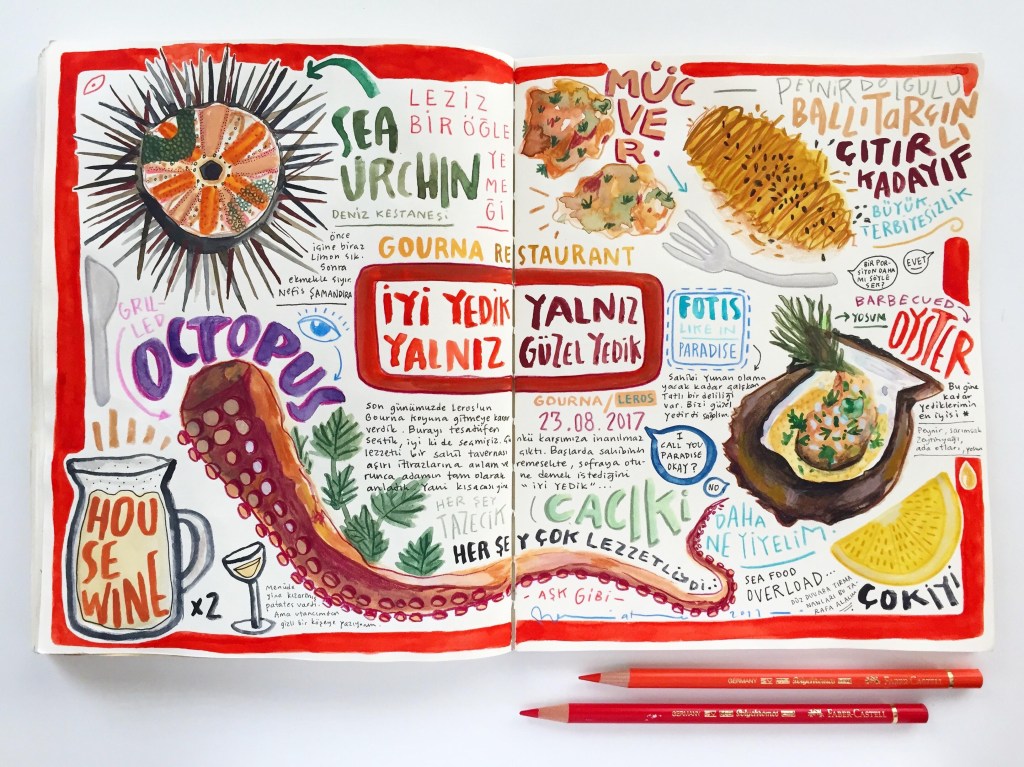 SEA
URCHIN
DENİZ KESTANESİ
LEZİZ
BİR ÖĞLE
YE
ME
Ğİ
önce
içine biraz
Limon sık.
Sonra
ekmekle sıyır.
Nefis ŞAMANDIRA
GOURNA RESTAURANT
İYİ YEDİK YALNIZ
YALNIZ GÜZEL YEDİK
GRIL-
LED
OCTOPUS
Son günümüzde Leros'un
Gourna koyuna gitmeye karar
verdik. Burayı tesadüfen
seçtik, iyi ki de seçmişiz.
lezzetli bir sahil tavernası
aşırı itirazlarına anlam
runca adamın tam olarak
anladık. Yani kısacası
GOURNA/LEROS
23.08.2017
karşımıza inanılmaz
çıktı. Başlarda sahibinin
remesekte, sofraya otu-
ne demek istediğini
"iYi YEDİK"...
HER ŞEY
TAZECİK
HER ŞEY ÇOK LEZZETLİYDİ.
CACIKi
- AŞK GİBİ -
2017
HOU
SE
WINE
x2
Menüde
yine kızarmış
patates vardı.
Ama utancımdan
gizli bir köşeye yazıyorum.
MÜC
VE
R.
PEYNİR DOLGULU
BALLI TARÇIN
LI
ÇITIR
KADAYIF
BÜYÜK
TERBİYESİZLİK
BİR POR-
SİYON DAHA
MI SÖYLE
SEK?
EVET
FOTIS
LIKE IN
PARADISE
Sahibi Yunan olama
yacak kadar çalışkan
Tatlı bir deliliği
var. Bizi güzel
yedirdi sağolsun.
I
CALL YOU
PARADISE
OKAY?
NO
BARBECUED
OYSTER
→ YOSUN
Bu güne
kadar
yediklerimin
en iyisi
Peynir, sarımsak
Zeytinyağı,
ada otları, yosun
DAHA
NE YİYELİM.
SEA FOOD
OVERLOAD...
DÜZ DUVARA TIRMA
NANLARI BU TA-
RAFA ALALIM
ÇOK İYİ
GERMANY Polychromos FABER-CASTELL
GERMANY Polychromos FABER-CASTELL